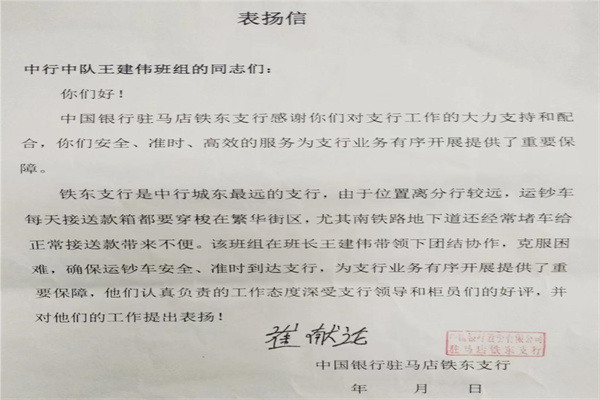 表扬信
中行中队王建伟班组的同志们：
你们好！
中国银行驻马店铁东支行感谢你们对支行工作的大力支持和配
合，你们安全、准时、高效的服务为支行业务有序开展提供了重要保
障。
铁东支行是中行城东最远的支行，由于位置离分行较远，运钞车
每天接送款箱都要穿梭在繁华街区，尤其南铁路地下道还经常堵车给
正常接送款带来不便。该班组在班长王建伟带领下团结协作，克服困
难，确保运钞车安全、准时到达支行，为支行业务有序开展提供了重
要保障，他们认真负责的工作态度深受支行领导和柜员们的好评，并
对他们的工作提出表扬！
驻马店铁东支行
中国银行驻马店铁东支行
年 月 日